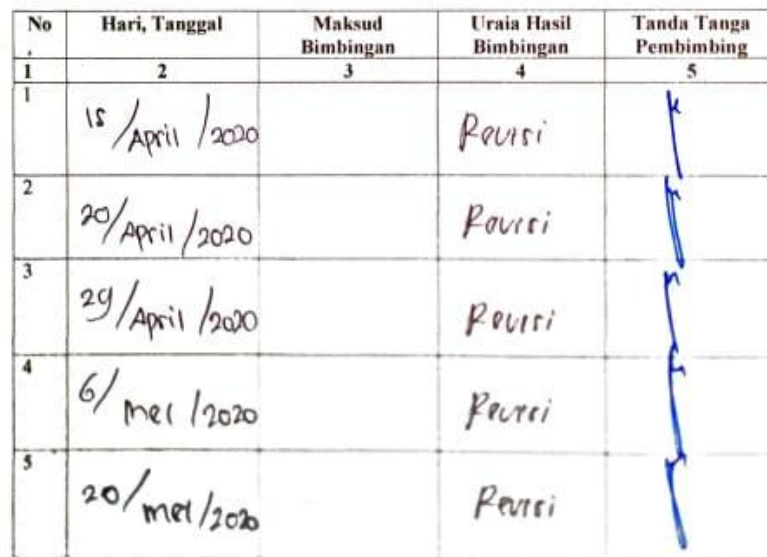 No Hari, Tanggal Maksud Bimbingan Uraia Hasil Bimbingan Tanda Tanga Pembimbing
1 2 3 4 5
1 15/April/2020 Revisi
2 20/April/2020 Revisi
3 29/April/2020 Revisi
4 6/mei/2020 Revisi
5 20/mei/2020 Revisi